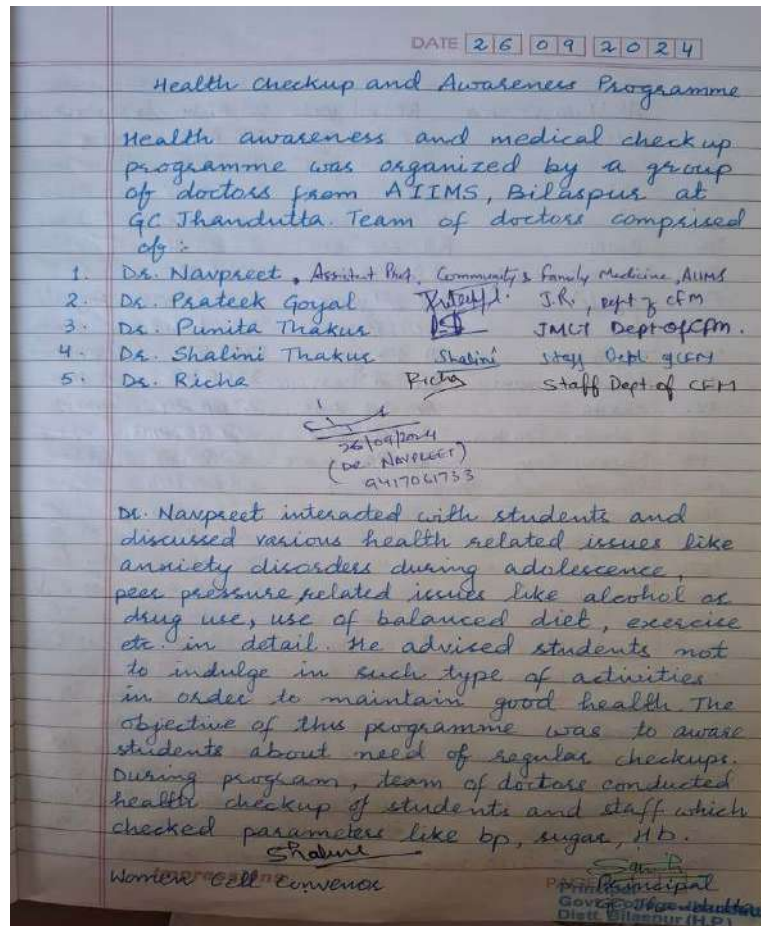 DATE 26 09 2024
Health Checkup and Awareness Programme
Health awareness and medical check up
programme was organized by a group
of doctors from AIIMS, Bilaspur at
GC Jhandutta. Team of doctors comprised
of :-
1. Dr. Navpreet, Assitent Prof. Community & Family Medicine, AIIMS
2. Dr. Prateek Goyal J.R., Dept of CFM
3. Dr. Punita Thakur Dept of CFM.
4. Dr. Shalini Thakur Shalini Staff Dept of CFM
5. Dr. Richa Richa Staff Dept. of CFM
26/09/2024
(Dr. NAVPREET)
9417061733
Dr. Navpreet interacted with students and
discussed various health related issues like
anniety disorders during adolescence,
peer pressure related issues like alcohol or
drug use, use of balanced diet, exercise
etc. in detail. He advised students not
to indulge in such type of activities
in order to maintain good health. The
objective of this programme was to aware
students about need of regular checkups.
During program, team of doctors conducted
health checkup of students and staff which
checked parameters like bp, sugar, Hb.
Shalini
Women Cell Convenor Principal
Distt. Bilaspur (H.P.)